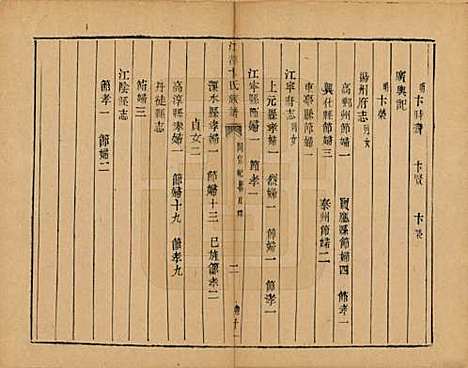 明 卞時壽 卞賢 卞榮
廣輿記
明 卞榮
揚州府志 列女
高郵州節婦一 寶應縣節婦四 節孝一
興化縣節婦三 泰州節婦二
東臺縣節婦一
江寧府志 列女
上元縣孝婦一 烈婦一 節婦一 節孝一
江寧縣節婦一 節孝一
江 卞氏族譜 二
溧水縣孝婦一 節婦十三 已旌節孝二
貞女二
高淳縣孝婦一 節婦十九 節孝九
丹徒縣志
節婦三
江陰縣志
節孝一 節婦二